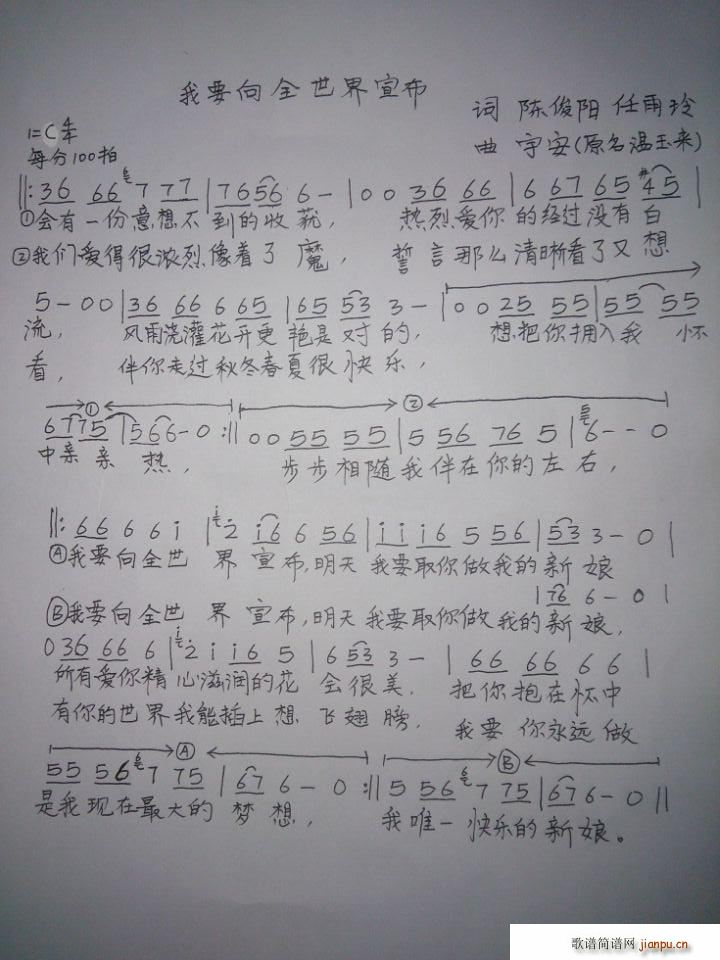 我要向全世界宣布
词 陈俊阳 任雨玲
1=C 4/4
每分100拍
曲 宇安(原名温玉来)
||: 36 66 6 7 777 | 7656 6 - | 0 0 36 66 | 6 67 65 #45 |
①会有一份意想不到的收获, 热烈爱你的经过没有白
②我们爱得很浓烈像着了魔, 誓言那么清晰看了又想
5 - 0 0 | 36 66 6 65 | 65 53 3 - | 0 0 25 55 | 55 55
流, 风雨浇灌花开更艳是对的, 想把你拥入我 怀
看, 伴你走过秋冬春夏很快乐,
① ②
67 75 | 566 - 0 :|| 0 0 55 55 | 5 56 76 5 | 5 6 - - 0
中亲亲热, 步步相随我伴在你的左右,
||: 66 6 6 i | i 2 i6 6 56 | i i i6 5 56 | 53 3 - 0 |
Ⓐ我要向全世 界 宣布,明天 我要取你做我的新娘
| 76 6 - 0 |
Ⓑ我要向全世 界 宣布,明天 我要取你做我的新娘,
0 36 66 6 | i 2 i i6 5 | 6 53 3 - | 66 66 6 6 |
所有爱你精心滋润的花 会很美. 把你抱在怀中
有你的世界我能插上想飞翅膀. 我要你永远做
Ⓐ Ⓑ
55 56 6 7 75 | 67 6 - 0 :|| 5 56 6 7 75 | 67 6 - 0 ||
是我现在最大的 梦想, 我唯一快乐的新娘。
歌谱简谱网 jianpu.cn